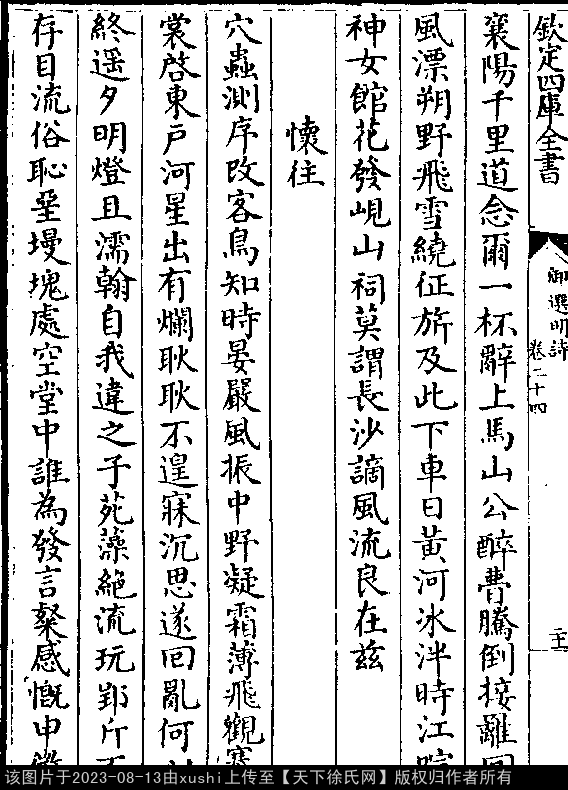 欽定四庫全書
御選明詩
卷二十四
二十一
襄陽千里道念爾一杯辭上馬山公醉曹騰倒接離回
風漂朔野飛雪繞征旂及此下車日黃河冰泮時江
神女館花發峴山祠莫謂長沙謫風流良在茲
懷往
穴蟲測序改客鳥知時晏嚴風振中野凝霜薄飛觀
裳啓東戶河星出有爛耿耿不遑寐沉思遂回亂何
終遥夕明燈且濡翰自我違之子苑藻絶流玩郢斤
存目流俗恥堊墁塊處空堂中誰為發言粲感慨申
该图片于2023-08-13由xushi上传至【天下徐氏网】版权归作者所有